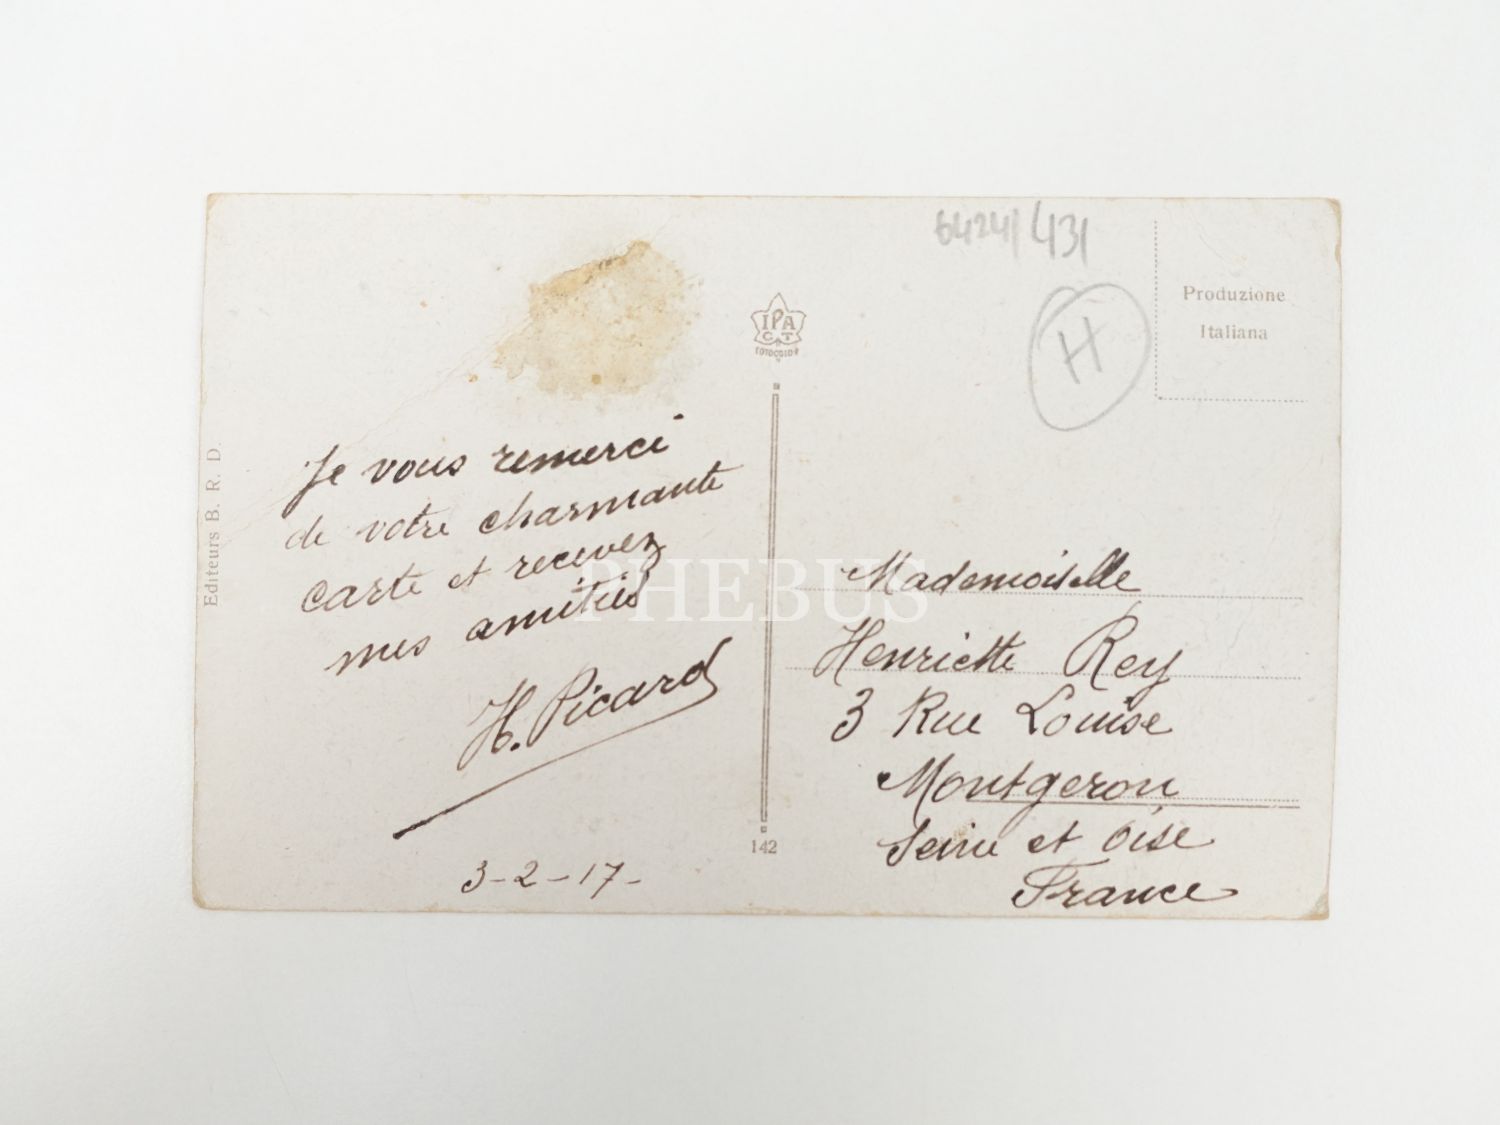 64241/431
H
Produzione
Italiana
IPA
CT
Editeurs B. R. D.
Je vous remerci
de votre charmante
carte et recevez
mes amitiés
H. Picard
3-2-17-
142
Mademoiselle
Henriette Rey
3 Rue Louise
Montgeron
Seine et Oise
France
PHEBUS